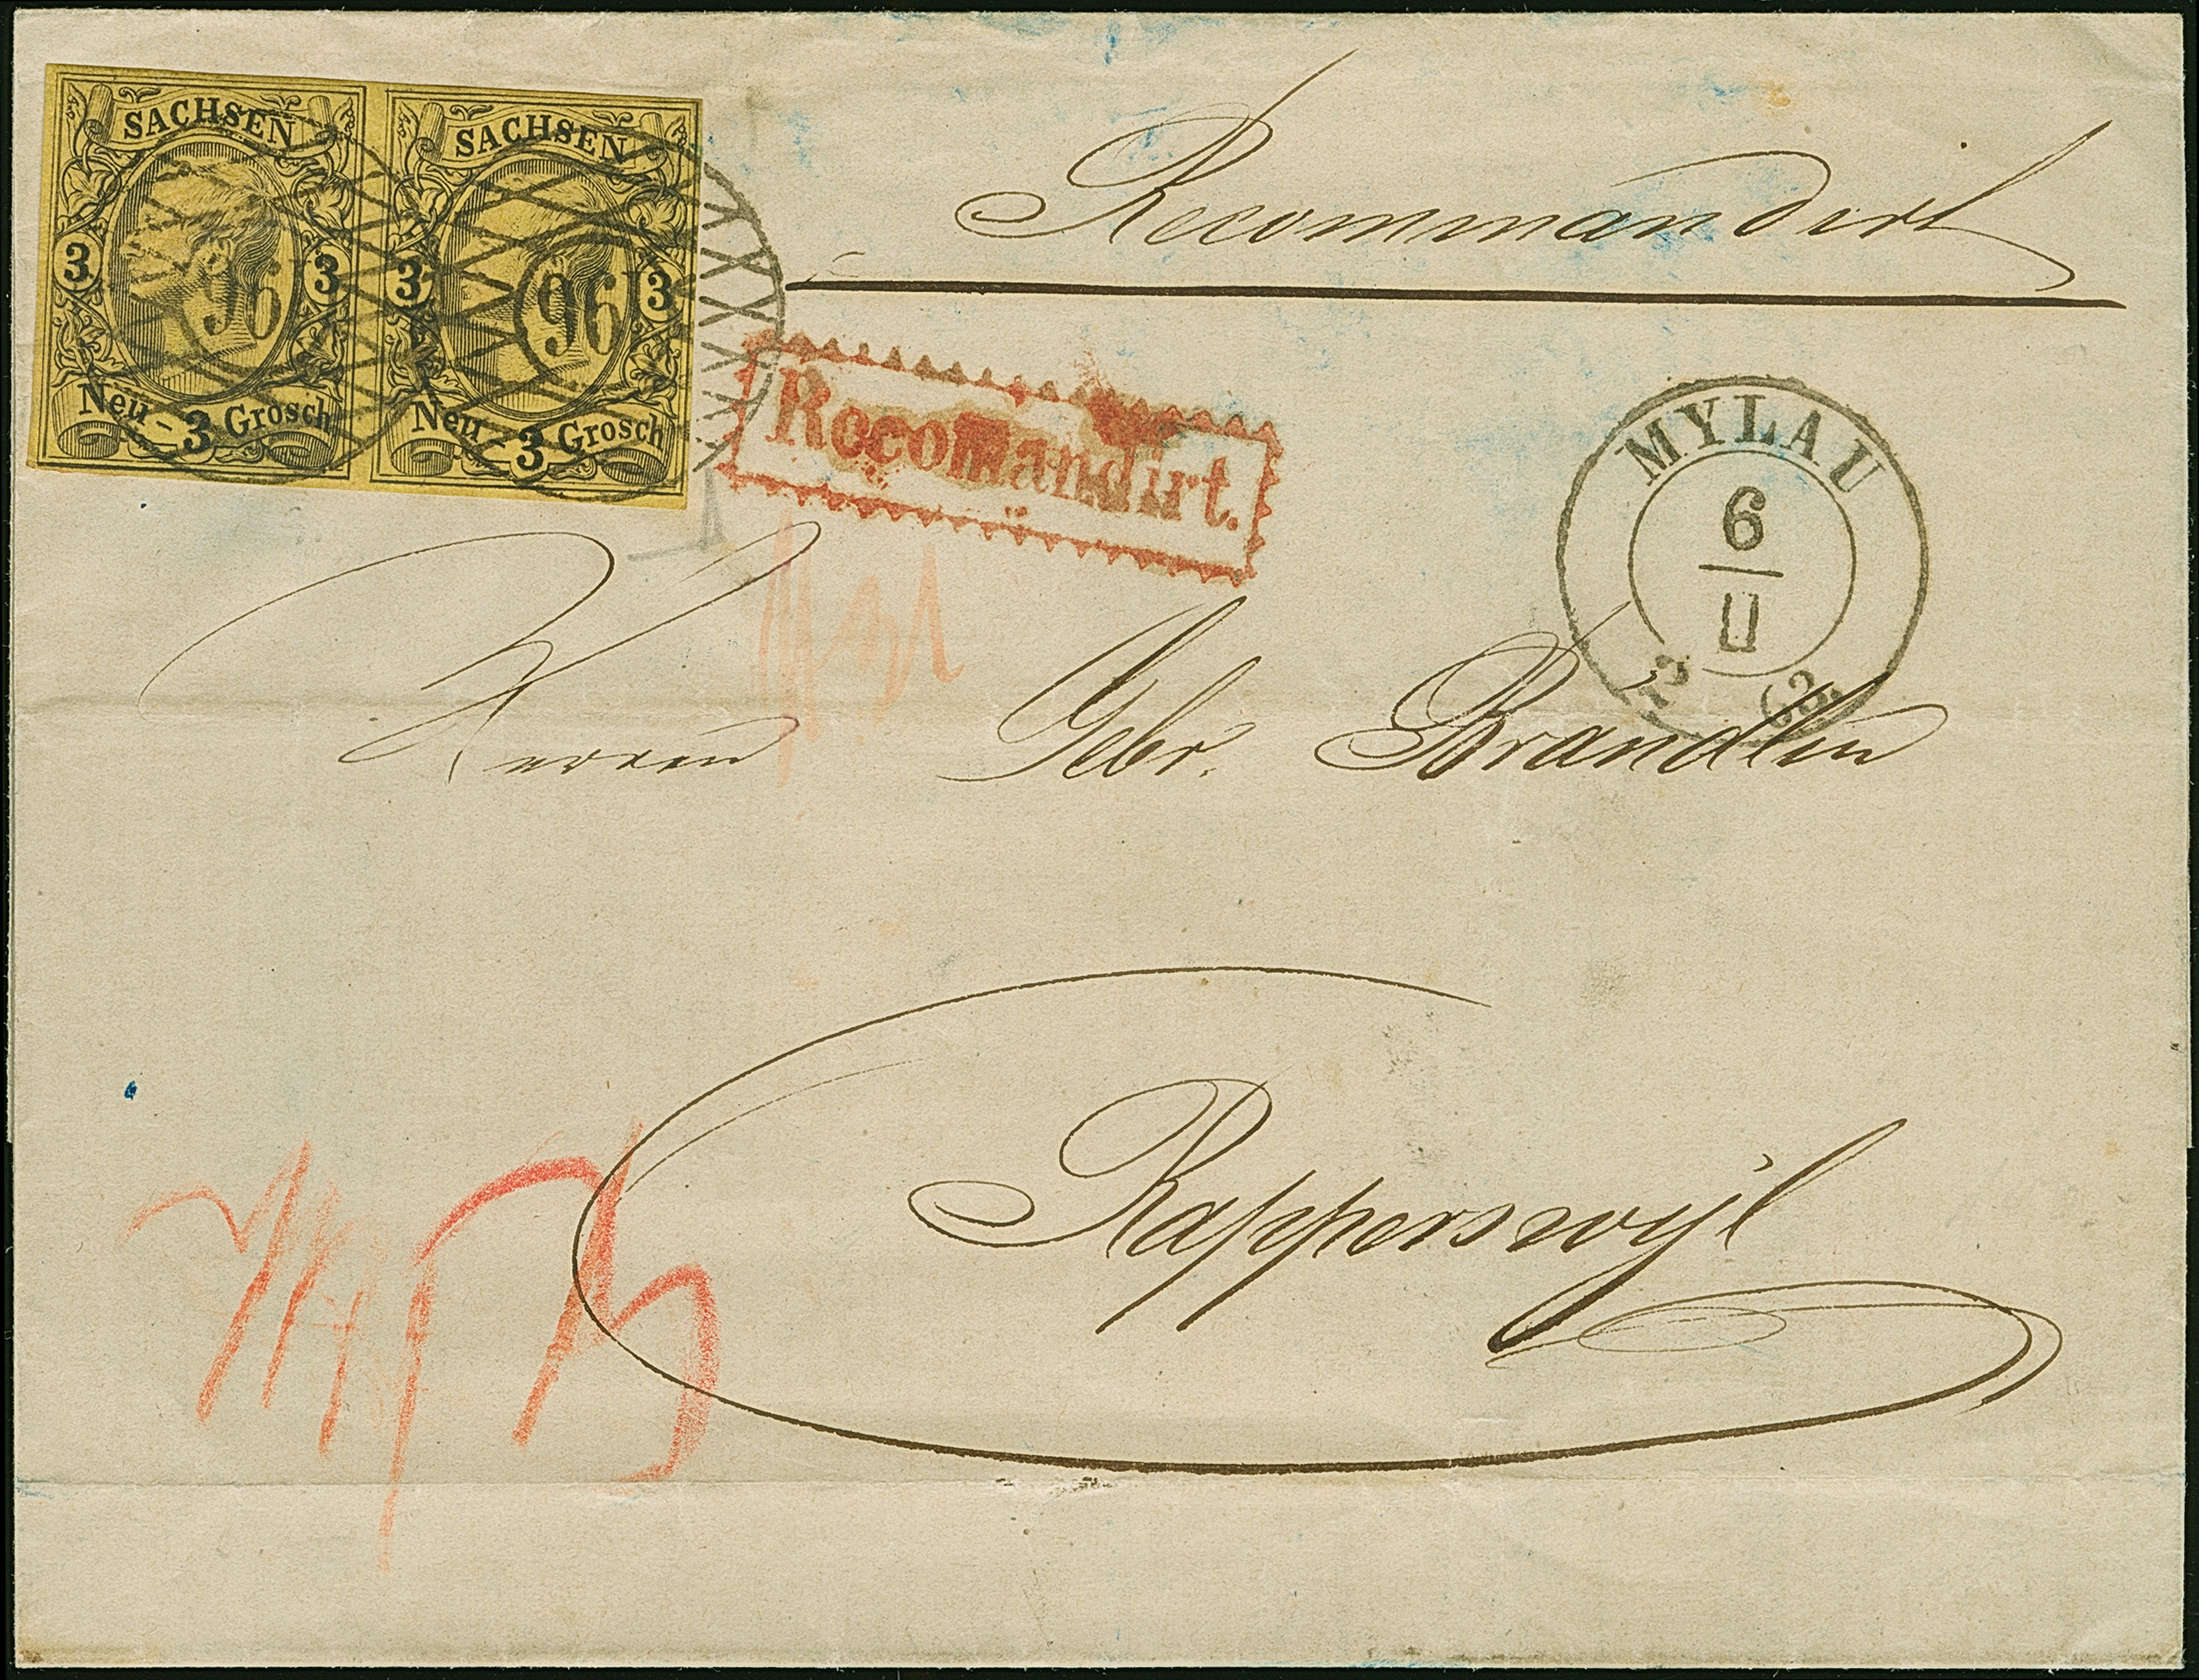 SACHSEN
3 96 3
Neu-3 Grosch
SACHSEN
3 96 3
Neu-3 Grosch
Recommandirt
Recomandirt.
MYLAU
6
II
Herren Gebr. Brändlin
Rapperswyl